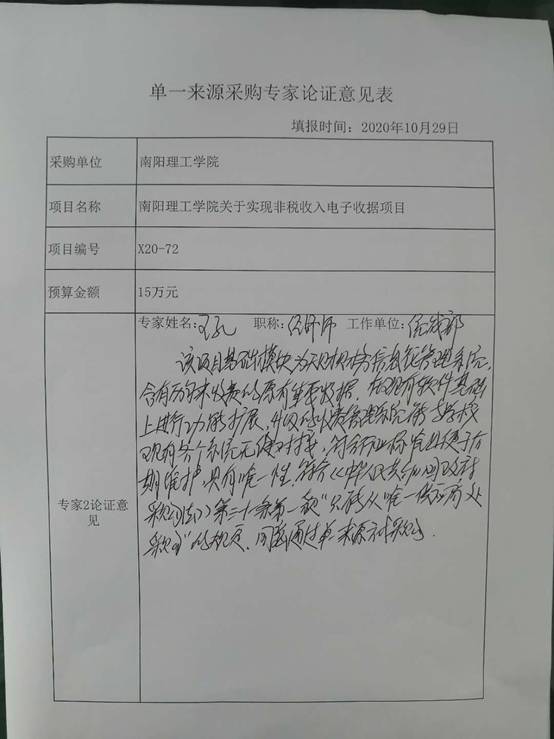 单一来源采购专家论证意见表
填报时间：2020年10月29日
采购单位 南阳理工学院
项目名称 南阳理工学院关于实现非税收入电子收据项目
项目编号 X20-72
预算金额 15万元
专家2论证意见
专家姓名： 职称： 工作单位：
该项目基础模块为 财务信息化管理系统，
含有历年来收费的原有重要数据，在现有软件基础
上进行功能扩展，升级的收费管理系统能与学校
现有各个系统无缝对接，符合行业标准且便于后
期维护，具有唯一性。符合《中华人民共和国政府
采购法》第三十一条第一款“只能从唯一供应商处
采购”的规定，同意通过单一来源 采购。